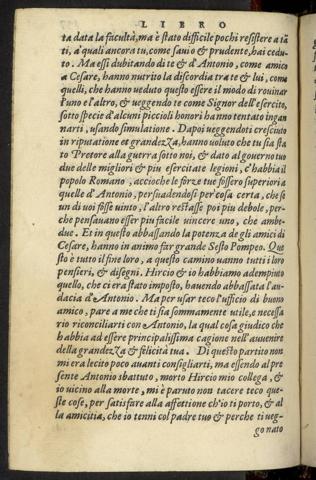 LIBRO
ta data la facultà, ma è stato difficile pochi resistere a tā
ti, à quali ancora tu, come sauio & prudente, hai cedu-
to. Ma essi dubitando di te & d'Antonio, come amico
a Cesare, hanno nutrito la discordia tra te & lui, come
quelli, che hanno ueduto questo essere il modo di rouinar
l'uno e l'altro, & ueggendo te come Signor dell'esercito,
sotto specie d'alcuni piccioli honori hanno tentato ingan
narti, usando simulatione. Dapoi ueggendoti cresciuto
in riputatione et grandezza, hanno uoluto che tu sia sta
to Pretore alla guerra sotto noi, & dato al gouerno tuo
due delle migliori & piu esercitate legioni, c'habbia il
popolo Romano, accioche le forze tue fossero superiori a
quelle d'Antonio, persuadendosi per cosa certa, che se
un di uoi fosse uinto, l'altro restasse poi piu debole, per-
che pensauano esser piu facile uincere uno, che ambe-
due. Et in questo abbassando la potenza de gli amici di
Cesare, hanno in animo far grande Sesto Pompeo. Que
sto è tutto il fine loro, a questo camino uanno tutti i loro
pensieri, & disegni. Hircio & io habbiamo adempiuto
quello, che ci era stato imposto, hauendo abbassata l'au-
dacia d'Antonio. Ma per usar teco l'ufficio di buono
amico, pare a me che ti sia sommamente utile, e necessa
rio riconciliarti con Antonio, la qual cosa giudico che
habbia ad essere principalissima cagione nell'auuenire
della grandezza & felicità tua. Di questo partito non
mi era lecito poco auanti consigliarti, ma essendo al pre
sente Antonio sbattuto, morto Hircio mio collega, &
io uicino alla morte, mi è paruto non tacere teco que-
ste cose, per satisfare alla affettione ch'io ti porto, & al
la amicitia, che io tenni col padre tuo & perche ti ueg-
go nato